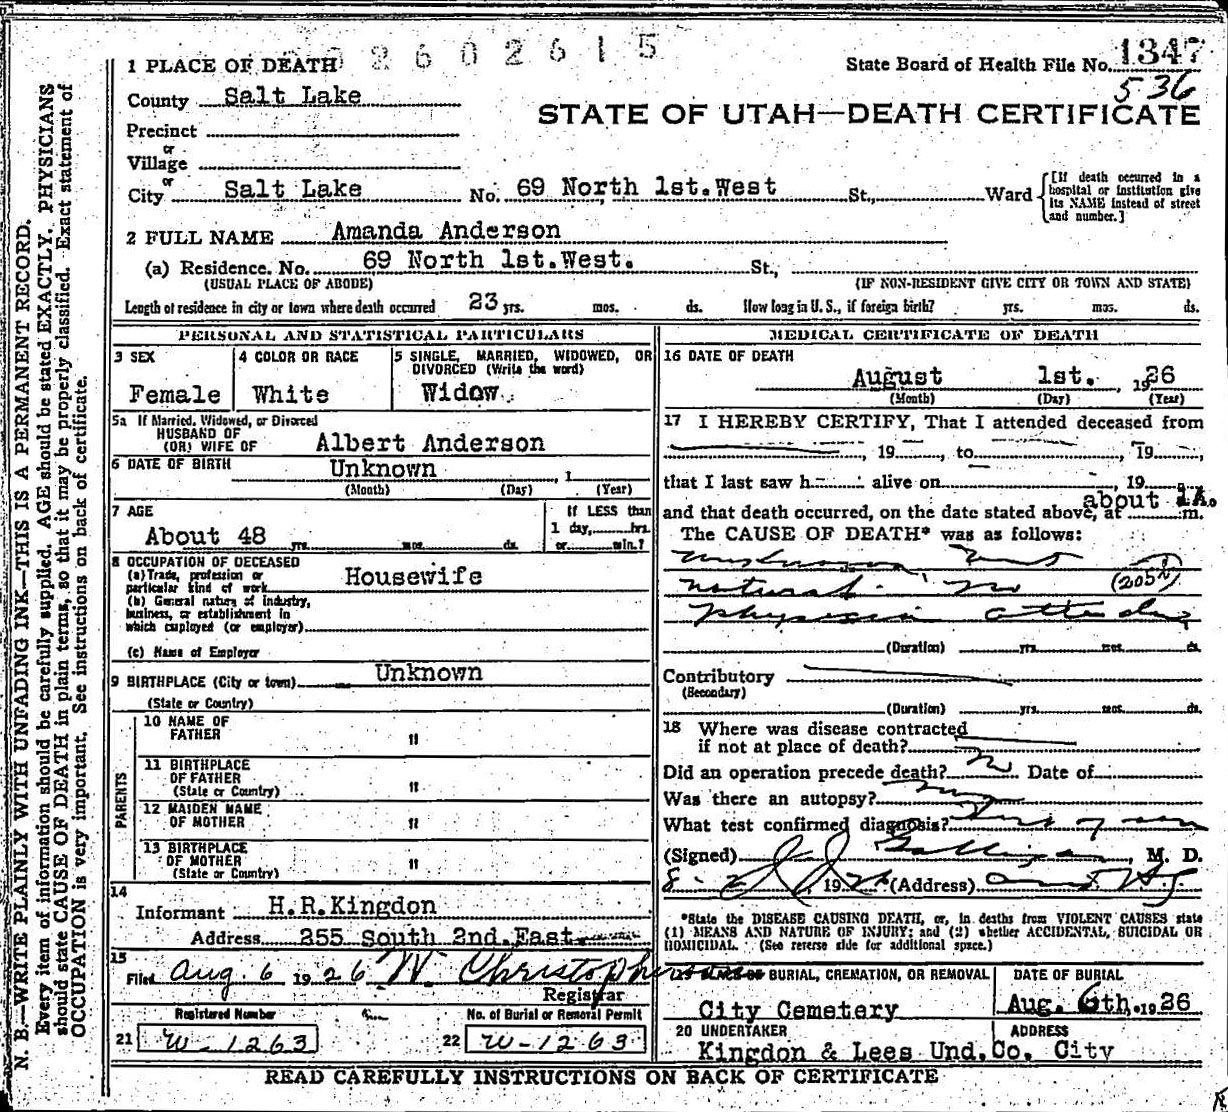 2602615
1347
State Board of Health File No.
536
1 PLACE OF DEATH
County Salt Lake
STATE OF UTAH—DEATH CERTIFICATE
Precinct
or
Village
or
City Salt Lake No. 69 North 1st.West St., Ward
[If death occurred in a hospital or institution give its NAME instead of street and number.]
2 FULL NAME Amanda Anderson
(a) Residence. No. 69 North 1st.West. St.,
(USUAL PLACE OF ABODE) (IF NON-RESIDENT GIVE CITY OR TOWN AND STATE)
Length of residence in city or town where death occurred 23 yrs. mos. ds. How long in U. S., if foreign birth? yrs. mos. ds.
PERSONAL AND STATISTICAL PARTICULARS
3 SEX 4 COLOR OR RACE 5 SINGLE, MARRIED, WIDOWED, OR
DIVORCED (Write the word)
Female White Widow.
5a If Married, Widowed, or Divorced
HUSBAND OF
(OR) WIFE OF Albert Anderson
6 DATE OF BIRTH Unknown , 1
(Month) (Day) (Year)
7 AGE If LESS than
About 48 yrs. mos. ds. 1 day, hrs.
or min.?
8 OCCUPATION OF DECEASED
(a) Trade, profession or
particular kind of work Housewife
(b) General nature of industry,
business, or establishment in
which employed (or employer)
(c) Name of Employer
9 BIRTHPLACE (City or town) Unknown
(State or Country)
PARENTS
10 NAME OF
FATHER "
11 BIRTHPLACE
OF FATHER
(State or Country) "
12 MAIDEN NAME
OF MOTHER "
13 BIRTHPLACE
OF MOTHER
(State or Country) "
14
Informant H.R.Kingdon
Address 255 South 2nd.East
15
Filed Aug. 6 1926 W. Christopherson
Registrar
Registered Number No. of Burial or Removal Permit
21 W-1263 22 W-1263
MEDICAL CERTIFICATE OF DEATH
16 DATE OF DEATH
August 1st. 1926
(Month) (Day) (Year)
17 I HEREBY CERTIFY, That I attended deceased from
, 19 , to , 19 ,
that I last saw h alive on , 19
about 1A.
and that death occurred, on the date stated above, at m.
The CAUSE OF DEATH* was as follows:
unknown but
natural. no (205b)
physician attending
(Duration) yrs. mos. ds.
Contributory
(Secondary)
(Duration) yrs. mos. ds.
18 Where was disease contracted
if not at place of death?
Did an operation precede death? no Date of
Was there an autopsy?
What test confirmed diagnosis?
(Signed) , M. D.
8-2 1926 (Address)
*State the DISEASE CAUSING DEATH, or, in deaths from VIOLENT CAUSES state
(1) MEANS AND NATURE OF INJURY; and (2) whether ACCIDENTAL, SUICIDAL OR
HOMICIDAL. (See reverse side for additional space.)
19 PLACE OF BURIAL, CREMATION, OR REMOVAL DATE OF BURIAL
City Cemetery Aug. 6th. 1926
20 UNDERTAKER ADDRESS
Kingdon & Lees Und.Co. City
READ CAREFULLY INSTRUCTIONS ON BACK OF CERTIFICATE
N. B.—WRITE PLAINLY WITH UNFADING INK—THIS IS A PERMANENT RECORD.
Every item of information should be carefully supplied. AGE should be stated EXACTLY. PHYSICIANS
should state CAUSE OF DEATH in plain terms, so that it may be properly classified. Exact statement of
OCCUPATION is very important. See instructions on back of certificate.